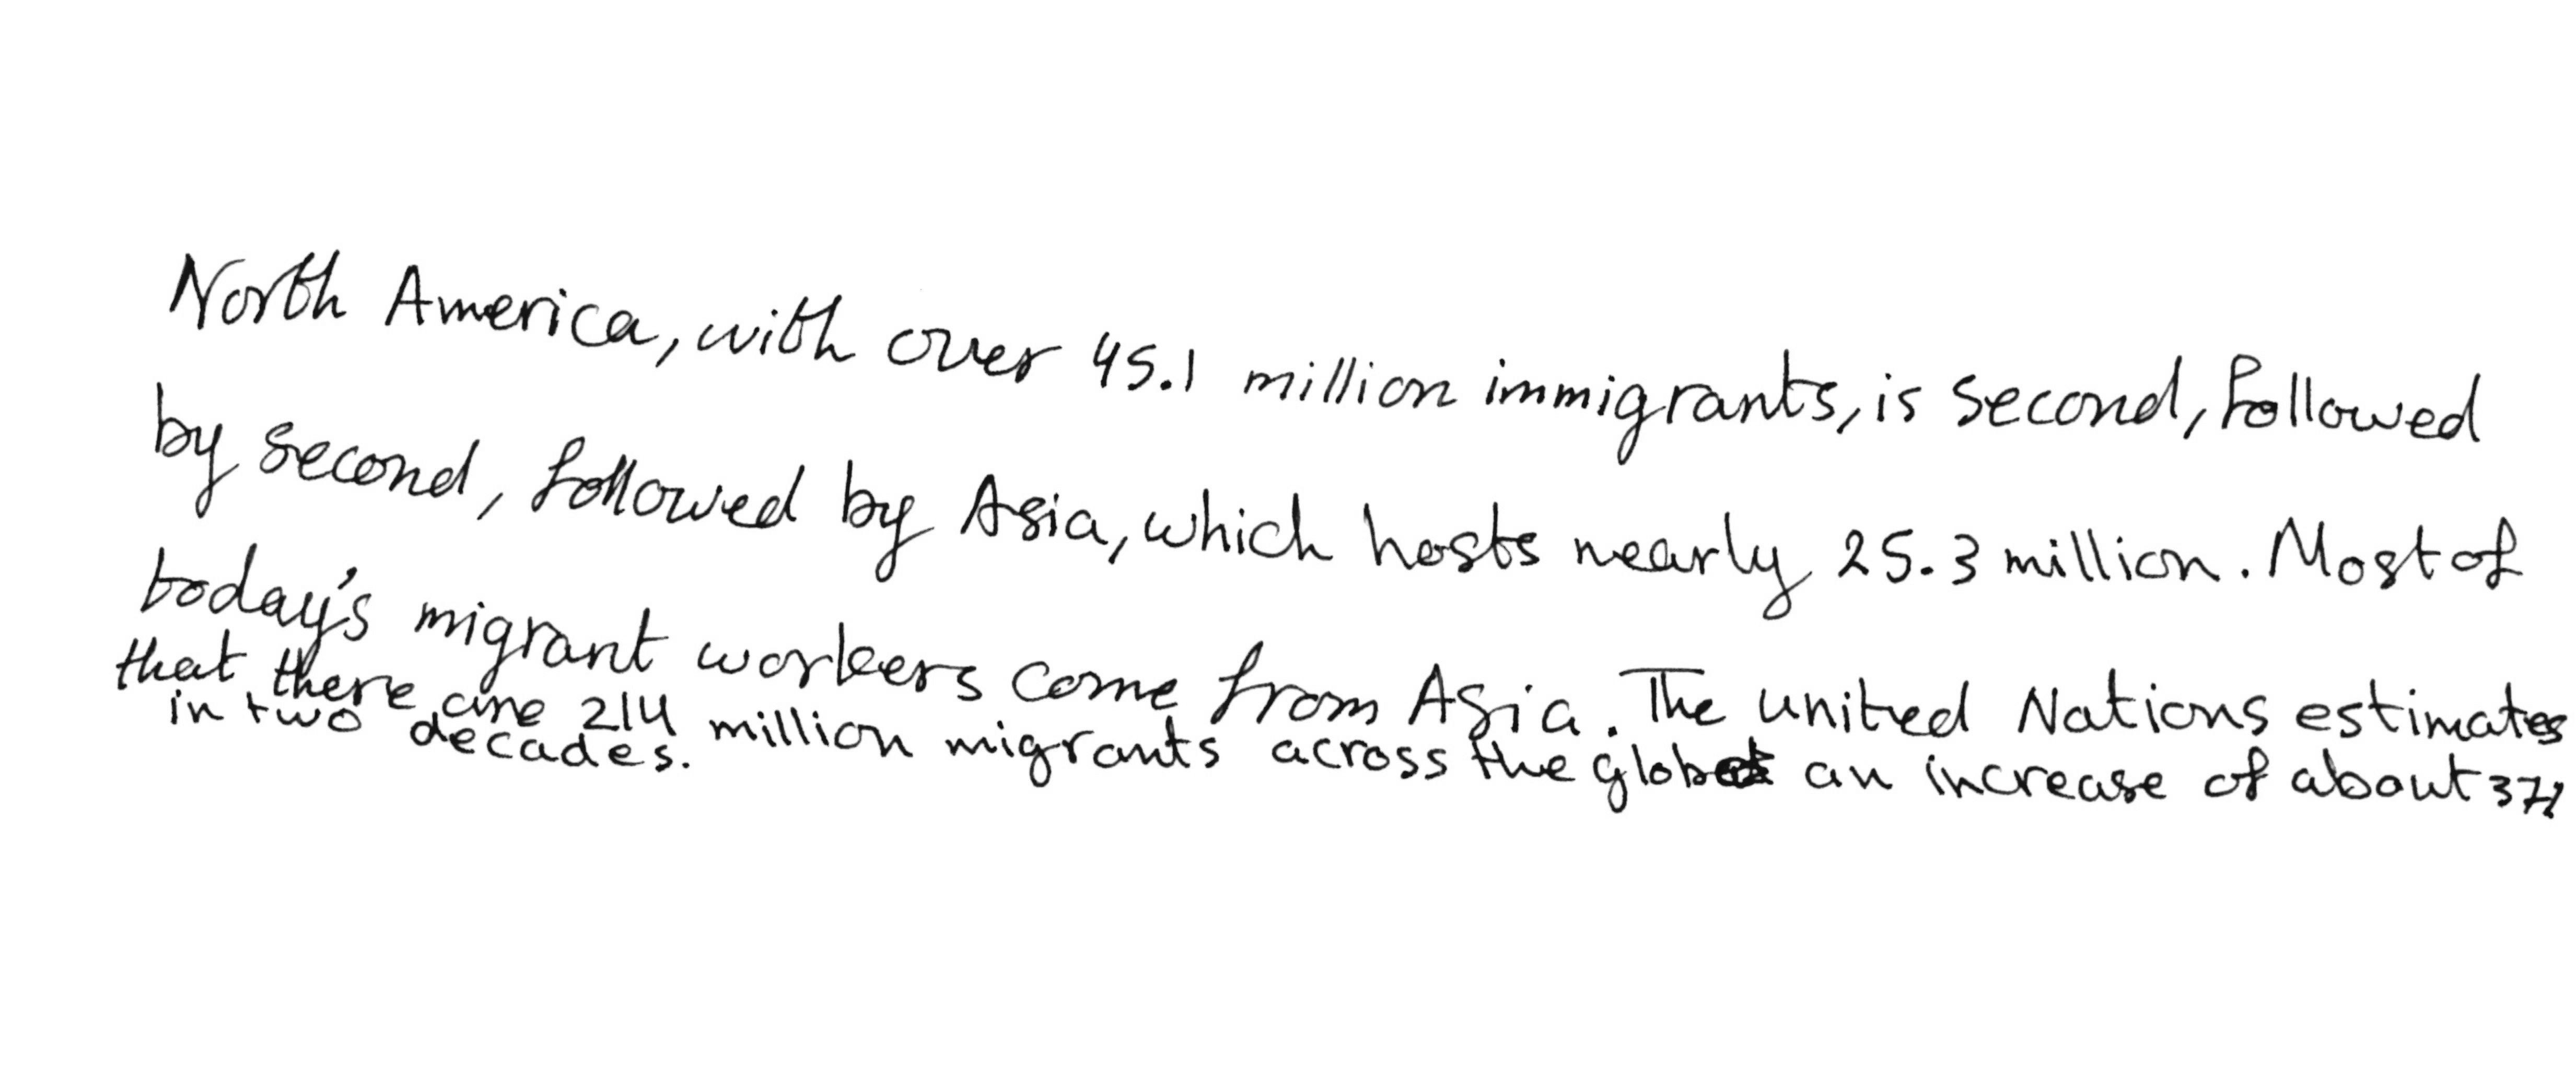 North America, with over 45.1 million immigrants, is second, followed
by second, followed by Asia, which hosts nearly 25.3 million. Most of
today's migrant workers come from Asia. The united Nations estimates
that there are 214 million migrants across the globe an increase of about 37%
in two decades.